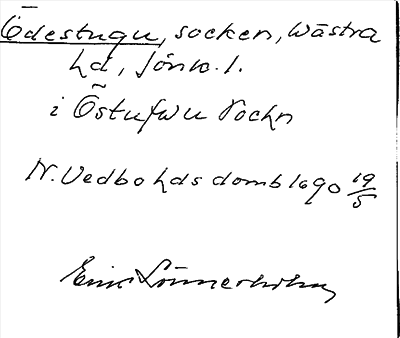 Ödestugu, socken, Wästra
hd, Jönk. l.
i Östufwu Sochn
N. Vedbo hds domb 1690 19/5
Erik Lönnerholm